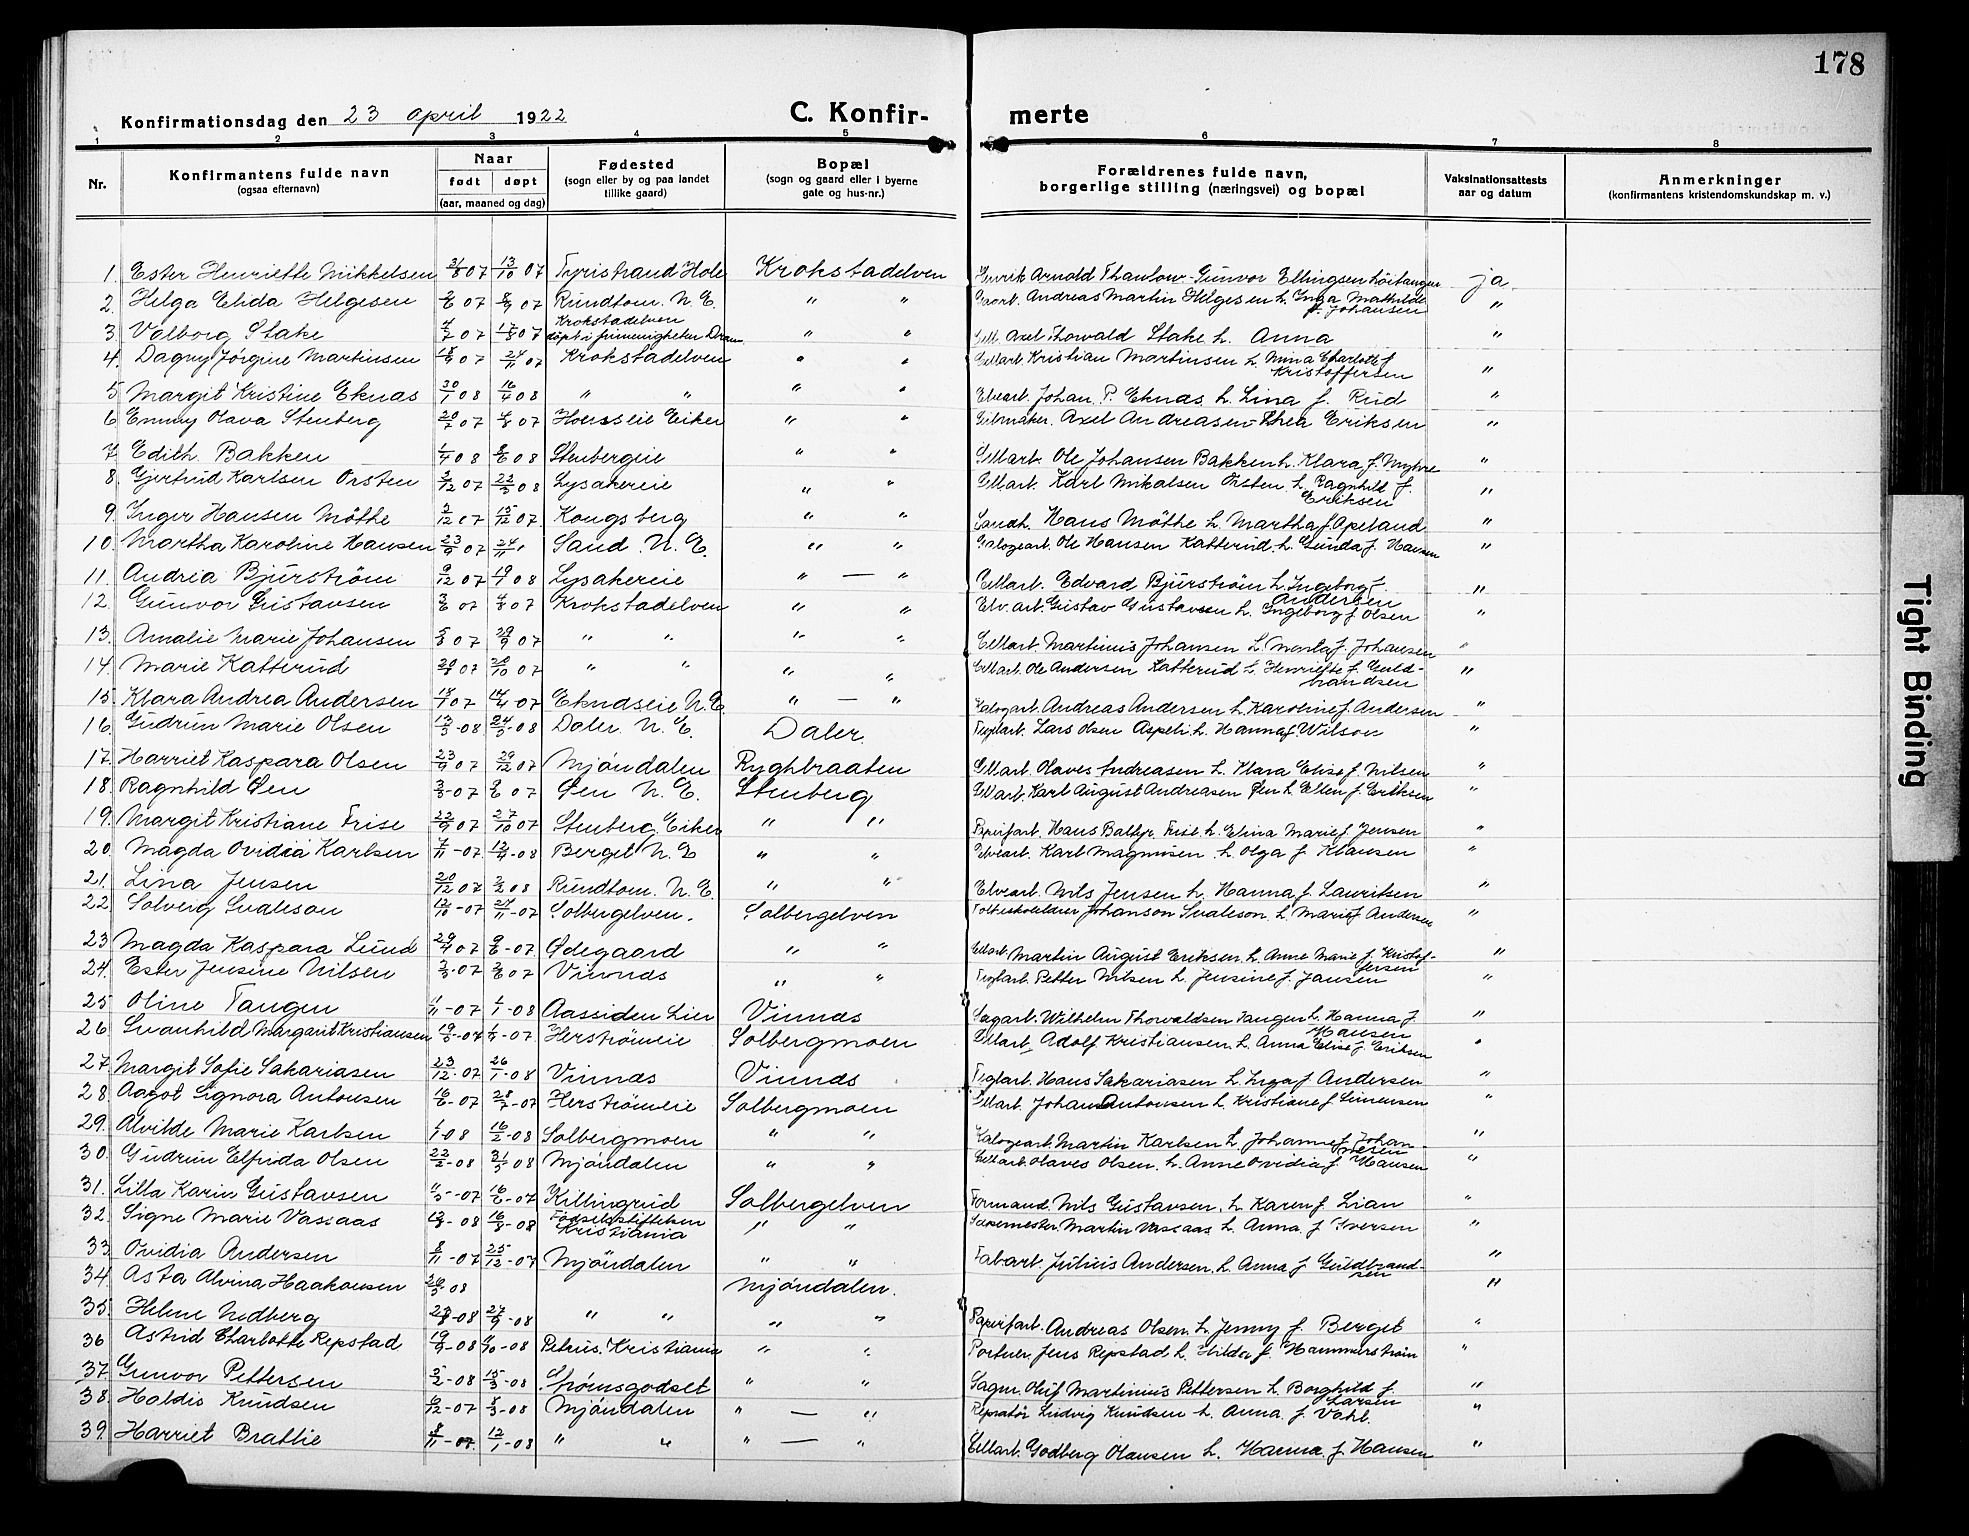 178
Konfirmationsdag den 23 april 1922 C. Konfir- merte
1 2 3 4 5 6 7 8
Nr. Konfirmantens fulde navn (ogsaa efternavn) Naar født døpt (aar, maaned og dag) Fødested (sogn eller by og paa landet tillike gaard) Bopæl (sogn og gaard eller i byerne gate og hus-nr.) Forældrenes fulde navn, borgerlige stilling (næringsvei) og bopæl Vaksinationsattests aar og datum Anmerkninger (konfirmantens kristendomskundskap m. v.)
1. Ester Henriette Mikkelsen 31/8 07 13/10 07 Tyristrand Hole Krokstadelven Henrik Arnold Thaulow - Gunvor Ellingsen ja.
2. Helga Elida Helgesen 07 07 Rundtom. N. E. " " Andreas Martin Helgesen h. Inga Mathilde f. Johansen "
3 Valborg Stake 4/7 07 07 Krokstadelven døpt i frimenigheten Dram. " " Axel Thorvald Stake h. Anna "
4. Dagny Jørgine Martinsen 07 24/11 07 Krokstadelven " " Cellart. Kristian Martinsen h. Mina Charlotte f. Kristoffersen "
5 Margit Kristine Eknæs 30/1 08 16/4 08 " " " " Elveart. Johan P. Eknæs h. Lina f. Rud "
6 Emmy Olava Stenberg 20/7 07 07 Horsseie Eiker " " Axel Andreasen - Thea Eriksen "
7 Edith Bakken 1/4 08 8/6 08 Stenbergeie " " Cellart. Ole Johansen Bakken h. Klara f. Myhre "
8. Gjertrud Karlsen Orsten 07 22/3 08 Lysakereie " " Cellart. Karl Mikalsen Orsten h. Ragnhild f. Eriksen "
9. Inger Hansen Møthe 2/12 07 15/12 07 Kongsberg " " Hans Møthe h. Martha f. Apeland "
10. Martha Karoline Hansen 23/9 07 24/11 " Sand N. E. " " Kalogeart. Ole Hansen Katterud h. Gunda f. Hansen "
11. Andrea Bjurstrøm 9/12 07 19/1 08 Lysakereie " — " Cellart. Edvard Bjurstrøm h. Ingeborg f. Andersen "
12. Gunvor Gustavsen 3/6 07 4/8 07 Krokstadelven " " Elv.art. Gustav Gustavsen h. Ingeborg f. Olsen "
13. Amalie Marie Johansen 5/8 07 29/9 07 " " " " Cellart. Martinius Johansen h. f. Johansen "
14. Marie Katterud 07 20/10 07 " " " " Cellart. Ole Andersen Katterud h. Henriette f. Guldbrandsen "
15 Klara Andrea Andersen 07 14/4 07 N. E. " — " Kalogart. Andreas Andersen h. Karoline f. Andersen "
16. Gudrun Marie Olsen 13/3 - 08 24/5 - 08 Daler. N. E. Daler. Teglart. Lars Olsen Aspeli h. Hanna f. Wilson "
17. Harriet Kaspara Olsen 23/9 07 29/12 07 Mjøndalen Ryghbraaten Cellart. Olaves Andreasen h. Klara Elise f. Nilsen "
18. Ragnhild Øen 07 07 Øen N. E. Stenberg Cellart. Karl August Andreasen Øen h. Ellen f. Eriksen "
19. Margit Kristiane Frise 22/9 07 27/10 07 Stenberg Eiker " " Papirfart. Hans Baltzr. Frise h. Elina Marie f. Jensen "
20. Magda Ovidia Karlsen 1/11 - 07 12/4 - 08 Berget N. E. " " Elveart. Karl Magnusen h. Olga f. Klausen "
21. Lina Jensen 20/12 07 2/2 08 Rundtom. N. E. " " Elveart. Nils Jensen h. Hanna f. Lauritsen "
22 Solverg Svaleson 12/10 - 07 24/11 - 07 Solbergelven. Solbergelven Johanson Svaleson h. Marie f. Andersen "
23 Magda Kaspara Lund 29/4 07 9/6 - 07 Ødegaard " " Cellart. Martin August Eriksen h. Anne Marie f. Kristoffersen "
24. Ester Jensine Nilsen 07 07 Vinnæs " " Teglart. Petter Nilsen h. Jensine f. Jansen "
25 Oline Tangen - 07 1/1 - 08 Aassiden Lier Vinnæs Sagart. Wilhelm Thorvaldsen Tangen h. Hanna f. Hansen "
26 Svanhild Margarit Kristiansen 19/5 - 07 - 07 Herstrømeie Solbergmoen Cellart. Adolf Kristiansen h. Anna Elise f. Eriksen "
27 Margit Sofie Sakariasen 23/12 - 07 26/1 - 08 Vinnæs Vinnæs Teglart. Hans Sakariasen h. Inga f. Andersen "
28. Aagot Signora Antonsen 16/6 - 07 28/7 - 07 Herstrømeie Solbergmoen Cellart. Johan Antonsen h. Kristiane f. Simensen "
29. Alvilde Marie Karlsen 1/1 - 08 16/2 - 08 Solbergmoen " " Kalogeart. Martin Karlsen h. Johanne f. Johannesen "
30. Gudrun Elfrida Olsen 22/2 - 08 31/5 08 Mjøndalen " " Cellart. Olaves Olsen. h. Anne Ovidia f. Hansen "
31. Lilla Karin Gustavsen - 07 16/6 - 07 Killingrud Solbergelven Formand. Nils Gustavsen. h. Karen f. Lian "
32. Signe Marie Vassaas - 08 16/8 - 08 Fødselsstiftelsen Kristiania " " Martin Vassaas h. Anna f. Iversen "
33. Ovidia Andersen 8/11 - 07 25/12 - 07 Mjøndalen " " Fabart. Julius Andersen. h. Anna f. Guldbrandsen "
34. Asta Alvina Haakonsen 26/3 08 Mjøndalen. "
35. Helene Nedberg - 08 27/9 - 08 " " " " Papirfart. Andreas Olsen. h. Jenny f. Berget "
36 Astrid Charlotte Repstad 19/9 - 08 - 08 Petrus. Kristiania " " Portner. Jens Repstad h. Hilda f. Hammerstrøm "
37. Gunvor Pettersen 5/2 - 08 15/3 - 08 Strømsgodset " " Sagm. Oluf Martinius Pettersen h. Borghild f. Larsen "
38. Haldis Knudsen 6/12 - 07 8/3 - 08 Mjøndalen " — " Ludvig Knudsen h. Anna. f. Vahl. "
39. Harriet Brattlie 8/11 - 07 12/1 - 08 " " " — " Cellart. Godberg Olausen h. Hanna. f. Hansen "
Tight Binding